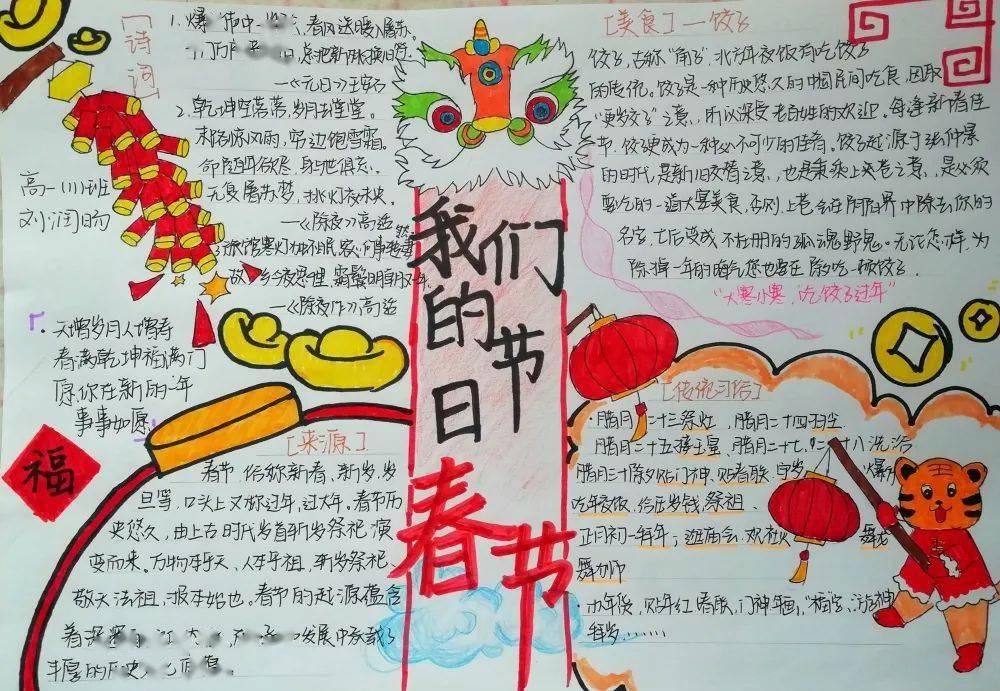 [诗词]
1. 爆竹中一 春风送暖入屠苏。
总把新桃换旧符。
——《元日》王安石
2. 乾坤空落落，岁月去堂堂。
末路惊风雨，穷边饱雪霜。
命随年欲尽，身与世俱忘。
无复屠苏梦，挑灯夜未央。
——《除夜》高适
3. 旅馆寒灯独不眠，客心何事转凄然
故乡今夜思千里，霜鬓明朝又一年。
——《除夜作》高适
高一(11)班
刘润旸
天增岁月人增寿
春满乾坤福满门
愿你在新的一年
事事如愿
福
[来源]
春节，俗称新春、新岁、岁
旦等，口头上又称过年、过大年。春节历
史悠久，由上古时代岁首祈岁祭祀演
变而来。万物本乎天、人本乎祖，祈岁祭祀、
敬天法祖，报本始也。春节的起源蕴含
着深 发展中承载了
丰厚的历史
我们
的节
日
春节
[美食]—饺子
饺子，古称“角子”，北方年夜饭有吃饺子
的传统。饺子是一种历史悠久的中国民间吃食，因取
“更岁饺子”之意，所以深受老百姓的欢迎。每逢新春佳
节，饺子便成为一种必不可少的佳肴。饺子起源于张仲景
的时代，是新旧交替之意，也是秉承上苍之意，是必须
要吃的一道大宴美食，否则，上苍会在阴阳界中除去你的
名字，亡后变成不在册的孤魂野鬼。无论怎样，为
除掉一年的晦气您也要在除夕吃一顿饺子。
“大寒小寒，吃饺子过年”
[传统习俗]
·腊月二十三祭灶，腊月二十四扫尘
腊月二十五接玉皇、腊月二十七、二十八洗浴
腊月三十除夕贴门神、贴春联、守岁、爆
吃年夜饭、给压岁钱、祭祖
正月初一拜年；逛庙会、欢社火 舞龙
舞狮
·办年货，贴年红 春联、门神年画、
年岁……